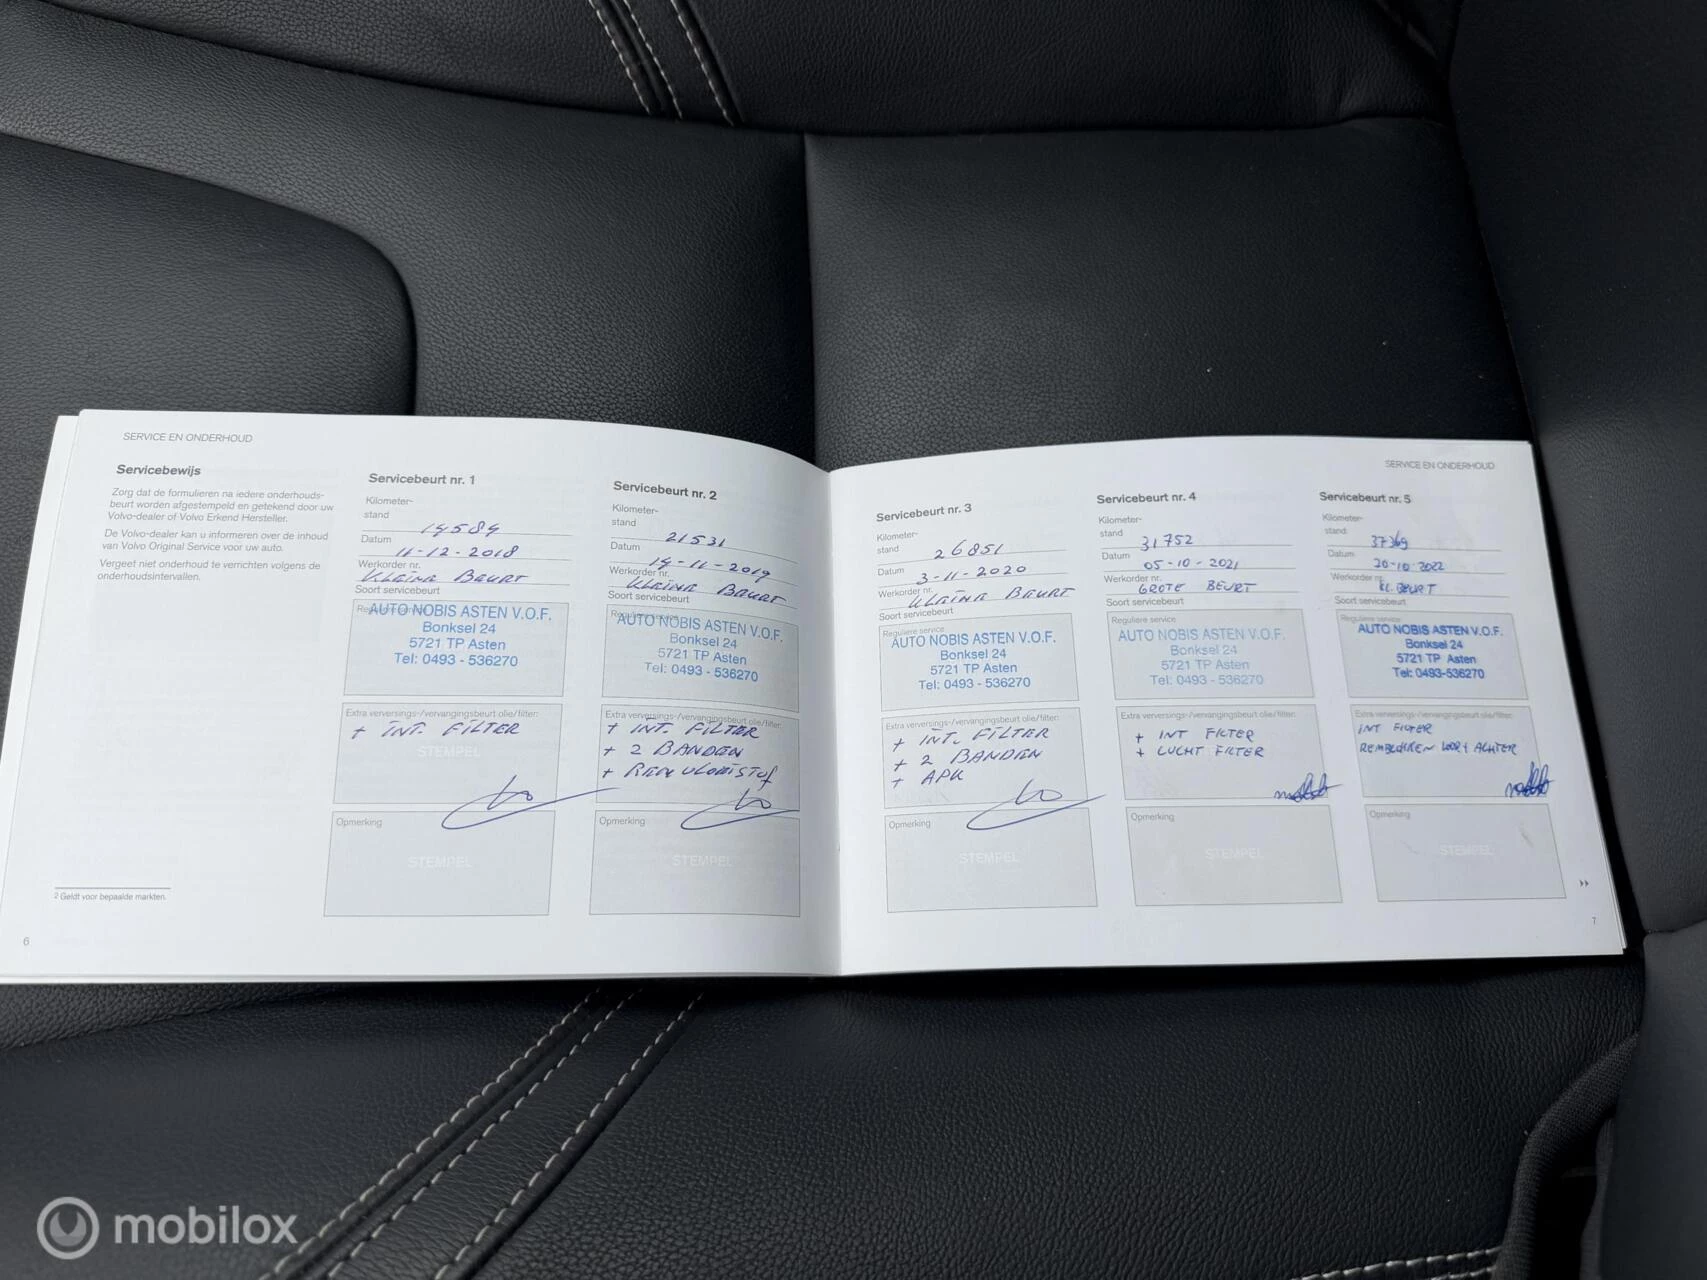 SERVICE EN ONDERHOUD
Servicebewijs
Zorg dat de formulieren na iedere onderhouds-
beurt worden afgestempeld en getekend door uw
Volvo-dealer of Volvo Erkend Hersteller.
De Volvo-dealer kan u informeren over de inhoud
van Volvo Original Service voor uw auto.
Vergeet niet onderhoud te verrichten volgens de
onderhoudsintervallen.
2 Geldt voor bepaalde markten.
6
Servicebeurt nr. 1
Kilometer-
stand
Datum 11-12-2018
Werkorder nr.
KLEINE BEURT
Soort servicebeurt
Reguliere service
AUTO NOBIS ASTEN V.O.F.
Bonksel 24
5721 TP Asten
Tel: 0493 - 536270
Extra verversings-/vervangingsbeurt olie/filter:
+ INT. FILTER
STEMPEL
Opmerking
STEMPEL
Servicebeurt nr. 2
Kilometer-
stand 21531
Datum 14-11-2019
Werkorder nr.
KLEINE BEURT
Soort servicebeurt
Reguliere service
AUTO NOBIS ASTEN V.O.F.
Bonksel 24
5721 TP Asten
Tel: 0493 - 536270
Extra verversings-/vervangingsbeurt olie/filter:
+ INT. FILTER
+ 2 BANDEN
+ REMVLOEISTOF
Opmerking
STEMPEL
SERVICE EN ONDERHOUD
Servicebeurt nr. 3
Kilometer-
stand 26851
Datum 3-11-2020
Werkorder nr.
KLEINE BEURT
Soort servicebeurt
Reguliere service
AUTO NOBIS ASTEN V.O.F.
Bonksel 24
5721 TP Asten
Tel: 0493 - 536270
Extra verversings-/vervangingsbeurt olie/filter:
+ INT. FILTER
+ 2 BANDEN
+ APK
Opmerking
STEMPEL
Servicebeurt nr. 4
Kilometer-
stand 31752
Datum 05-10-2021
Werkorder nr.
GROTE BEURT
Soort servicebeurt
Reguliere service
AUTO NOBIS ASTEN V.O.F.
Bonksel 24
5721 TP Asten
Tel: 0493 - 536270
Extra verversings-/vervangingsbeurt olie/filter:
+ INT FILTER
+ LUCHT FILTER
Opmerking
STEMPEL
Servicebeurt nr. 5
Kilometer-
stand 37369
Datum 20-10-2022
Werkorder nr.
KL. BEURT
Soort servicebeurt
Reguliere service
AUTO NOBIS ASTEN V.O.F.
Bonksel 24
5721 TP Asten
Tel: 0493-536270
Extra verversings-/vervangingsbeurt olie/filter:
INT FILTER
REMBLOKKEN VOOR + ACHTER
Opmerking
STEMPEL
7
mobilox